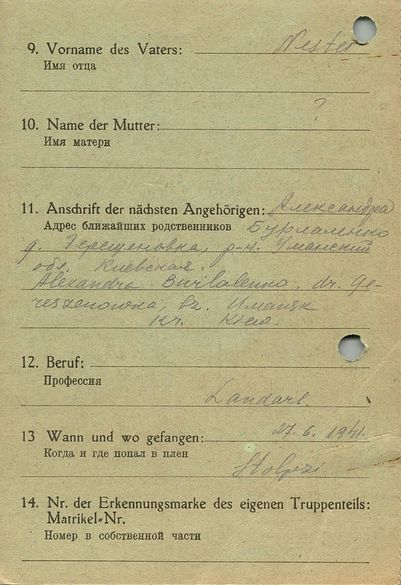 9. Vorname des Vaters: Nester
Имя отца
?
10. Name der Mutter:
Имя матери
11. Anschrift der nächsten Angehörigen: Александра
Адрес ближайших родственников Бурлаленко
д. Герещеновка, р-н. Уманский
обл. Киевская.
Alexandra Burlalenno, dr. Ge-
reszenowna, bz. Umansk
Kr. Kiew.
12. Beruf:
Профессия
Landarb.
13 Wann und wo gefangen: 27. 6. 1941.
Когда и где попал в плен
14. Nr. der Erkennungsmarke des eigenen Truppenteils:
Matrikel=Nr.
Номер в собственной части